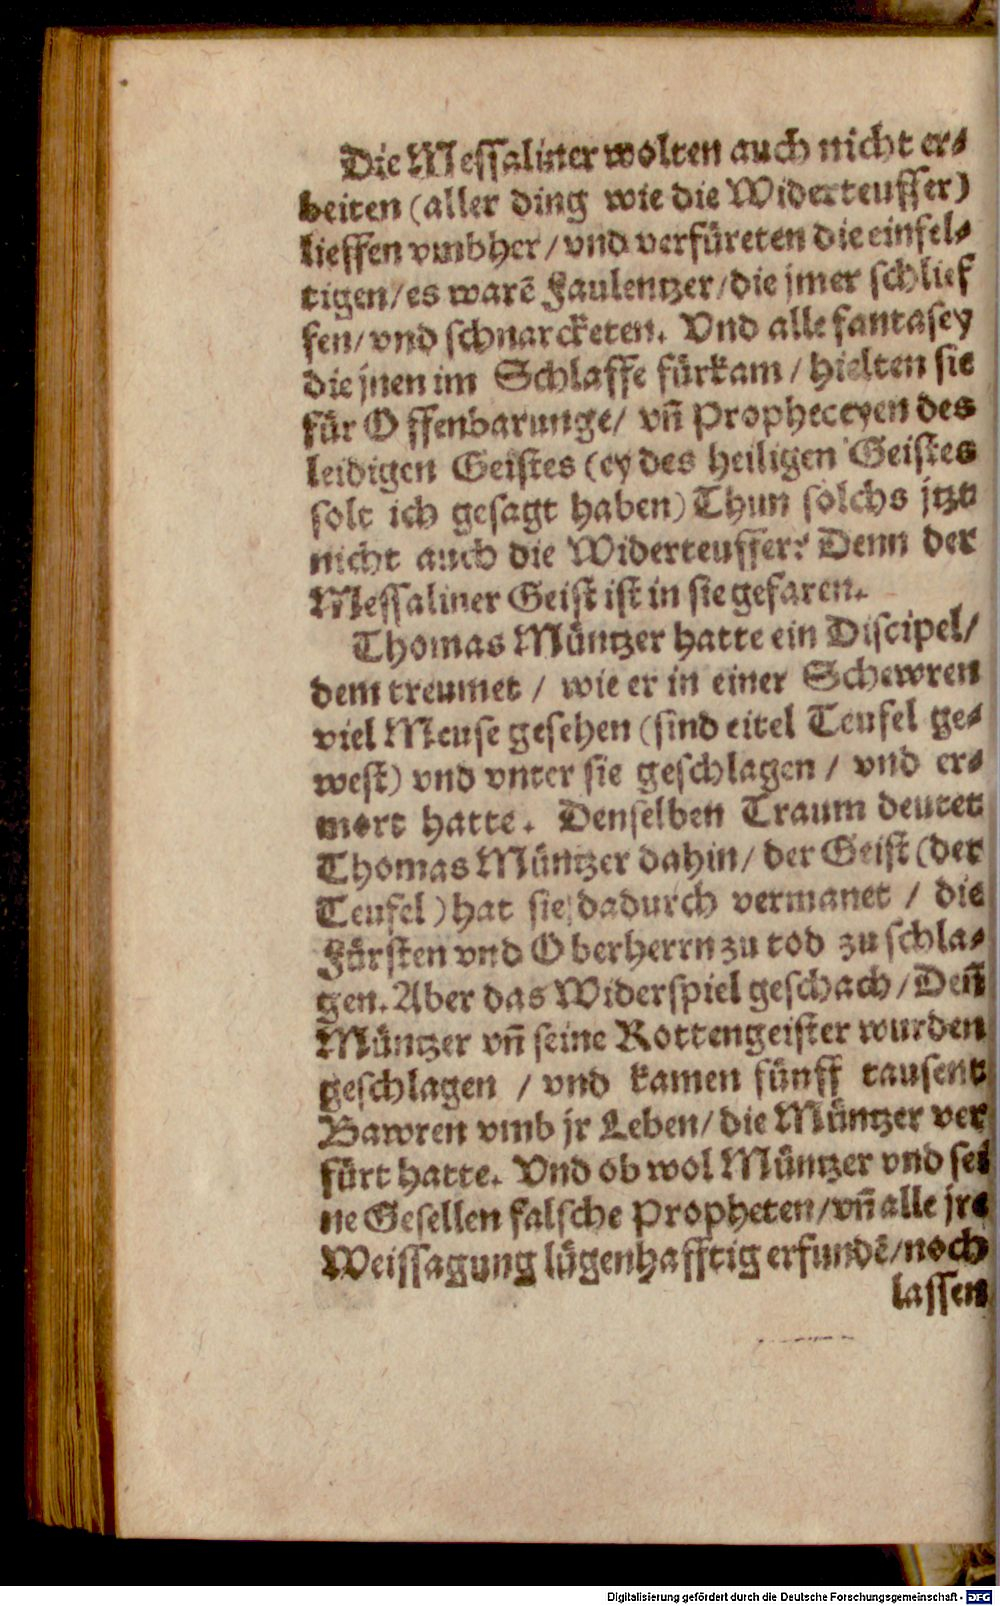 Die Messaliner wolten auch nicht er⸗
beiten (aller ding wie die Widerteuffer)
lieffen vmbher / vnd verfüreten die einfel⸗
tigen / es warē Faulentzer / die jmer schlief
fen / vnd schnarcketen. Vnd alle fantasey
die jnen im Schlaffe fürkam / hielten sie
für Offenbarunge / vn̄ Propheceyen des
leidigen Geistes (ey des heiligen Geistes
solt ich gesagt haben) Thun solchs jtzt
nicht auch die Widerteuffer? Denn der
Messaliner Geist ist in sie gefaren.
Thomas Müntzer hatte ein Discipel /
dem treumet / wie er in einer Schewren
viel Meuse gesehen (sind eitel Teufel ge⸗
west) vnd vnter sie geschlagen / vnd er⸗
mort hatte. Denselben Traum deutet
Thomas Müntzer dahin / der Geist (der
Teufel) hat sie dadurch vermanet / die
Fürsten vnd Oberherrn zu tod zu schla⸗
gen. Aber das Widerspiel geschach / Den̄
Müntzer vn̄ seine Rottengeister wurden
geschlagen / vnd kamen fünff tausent
Bawren vmb jr Leben / die Müntzer ver
fürt hatte. Vnd ob wol Müntzer vnd sei
ne Gesellen falsche Propheten / vn̄ alle jre
Weissagung lügenhafftig erfundē / noch
lassen
Digitalisierung gefördert durch die Deutsche Forschungsgemeinschaft - DFG